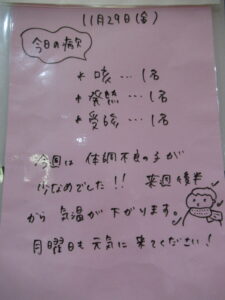 11月29日(金)
今日の病欠
* 咳 … 1名
* 発熱 … 1名
* 受診 … 1名
今週は 体調不良の子が
少なめでした!! 来週後半
から 気温が 下がります。
月曜日も 元気に 来てください!